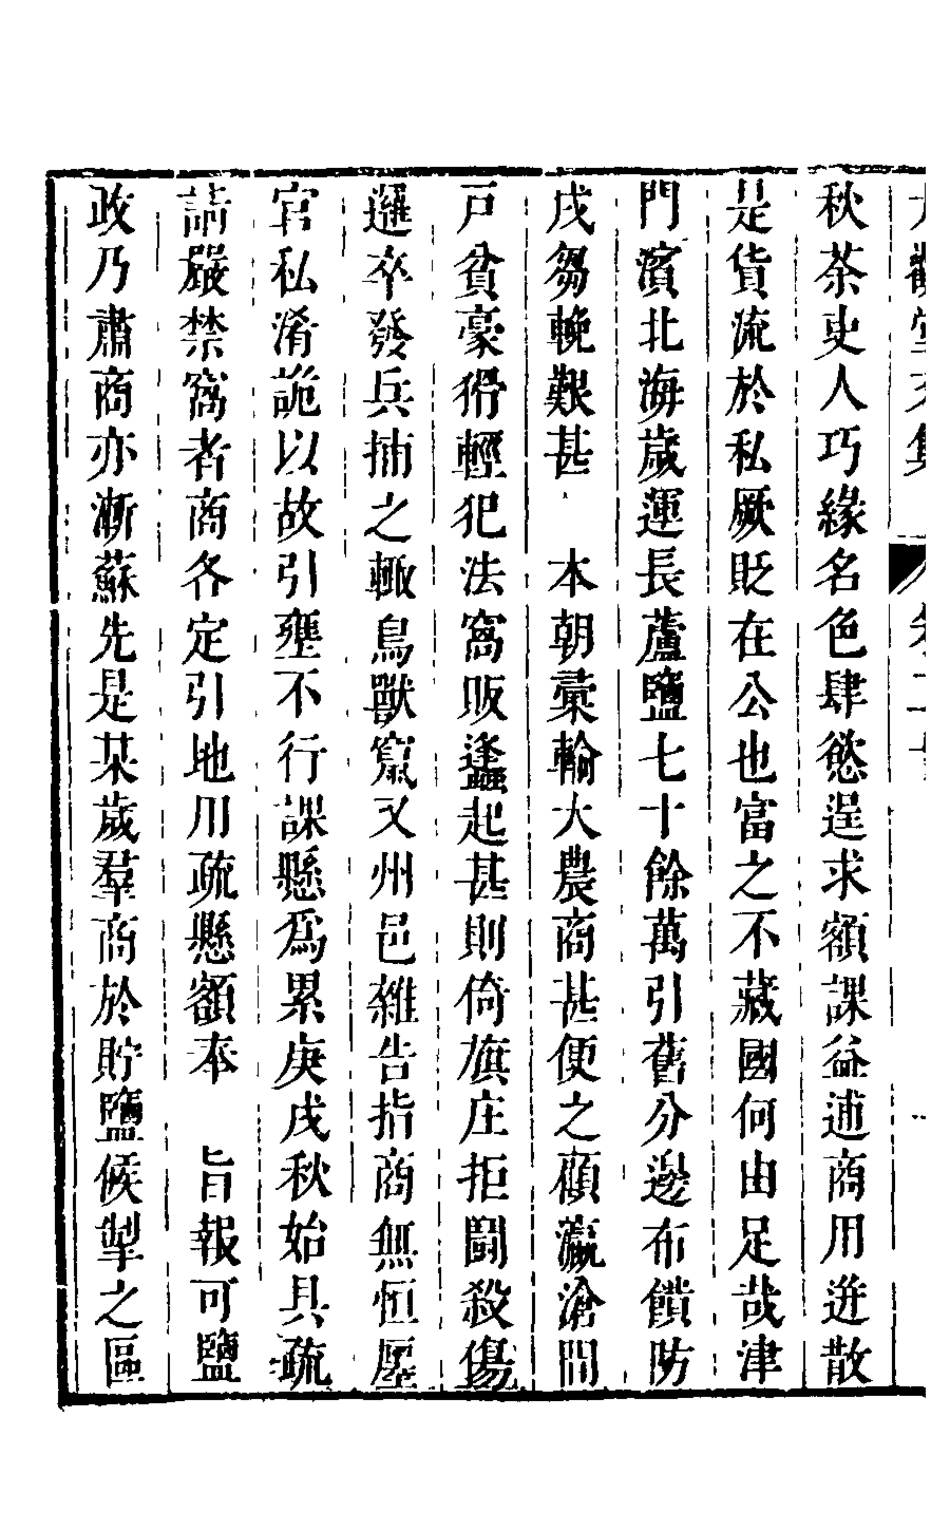 秋荼吏人巧緣名色肆慾逞求額課益逋商用逬散
是貨流於私厥貶在公也富之不藏國何由足哉津
門濱北海歲運長蘆鹽七十餘萬引舊分邊布饋防
戍芻輓艱甚　本朝彚輸大農商甚便之顧瀛滄間
戸貧豪猾輕犯法窩販蠭起甚則倚旗庄拒鬬殺傷
邏卒發兵捕之輙鳥獸竄又州邑雜告指商無恒㕓
官私淆詭以故引壅不行課懸爲累庚戌秋始具疏
請嚴禁窩者商各定引地用疏懸額奉　旨報可鹽
政乃肅商亦漸蘇先是某歲羣商於貯鹽候掣之區